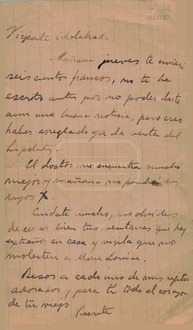 Vicente idolatrado:
Mañana jueves te enviaré
seiscientos francos, no te he
escrito antes por no poder darte
aun una buena noticia, pero creo
haber arreglado ya la venta del
El doctor me encuentra mucho
mejor y mañana me pondrá en
rayos X
Cuidate mucho, no olvides
de cerar tres tus ventanas que hay
extraño en casa y vigila que no
molesten a Marie Louise.
Besos a cada uno de mis
adorados, y para ti todo el corazon
de tu viejo
Vicente